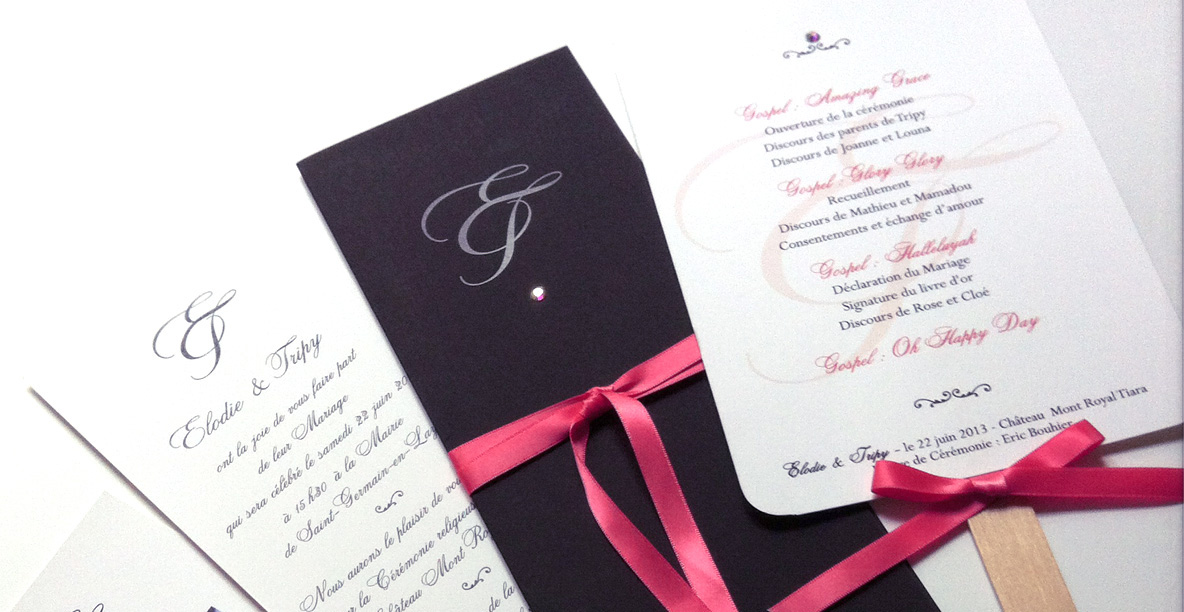 &
Elodie & Tripy
ont la joie de vous faire part
de leur Mariage
qui sera célébré le samedi 22 juin
à 15h30 à la Mairie
de Saint-Germain-en-Lay
Nous aurons le plaisir de
la Cérémonie religieus
Château Mont Ro
de la
&
Gospel : Amazing Grace
Ouverture de la cérémonie
Discours des parents de Tripy
Discours de Joanne et Louna
Gospel : Glory Glory
Recueillement
Discours de Mathieu et Mamadou
Consentements et échange d'amour
Gospel : Halleluyah
Déclaration du Mariage
Signature du livre d'or
Discours de Rose et Cloé
Gospel : Oh Happy Day
Elodie & Tripy - le 22 juin 2013 - Château Mont Royal Tiara
de Cérémonie : Eric Bouhier